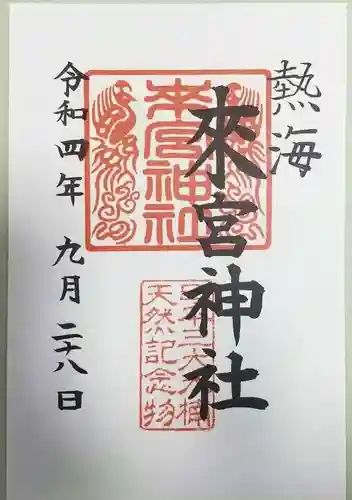 熱海
來宮神社
来宮神社
日本三大樟
天然記念物
令和四年 九月 二十八日